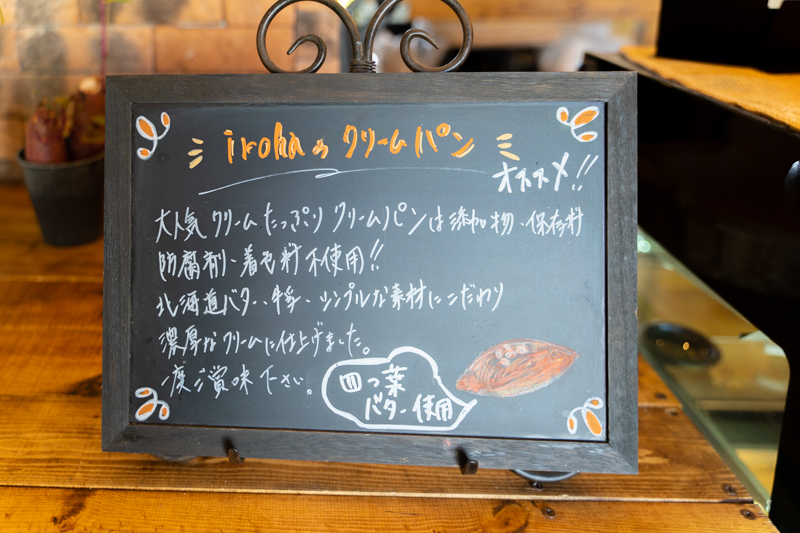 irohaのクリームパン
オススメ!!
大人気クリームたっぷりクリームパンは添加物・保存料
防腐剤・着色料不使用!!
北海道バター、牛乳・シンプルな素材にこだわり
濃厚なクリームに仕上げました。
一度ご賞味下さい。
四つ葉
バター使用